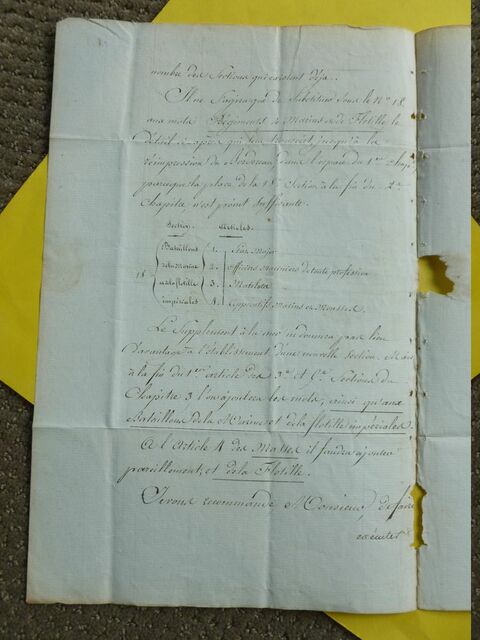 nombre des Sections qui existent déja.
Il ne s'agira que de Substituer sous le N.o 18
aux mots Régiments de Marins et de Flotille le
Détail ci après qui sera transcrit, jusqu'à la
réimpression du Bordereau dans l'espace du 1.er Chap.
parceque la place de la 18.e Section à la fin du 2.me
Chapitre, n'est point suffisante.
Section. Articles.
Bataillons 1. État Major
de la Marine 2. officiers Mariniers de toute profession
18 et de la flotille 3. Matelots
impériales 4. Apprentifs Marins et Mousses.
Le Supplement à la ne donnera pas lieu
Davantage à l'établissement d'une nouvelle section. Mais
à la fin du 1.er article des 3.e et Sections du
Chapitre 3 l'on ajoutera les mots, ainsi qu'aux
Bataillons de la Marine et de la flotille impériales
A l'Article 4 des Masses il faudra ajouter
pareillement, et de la Flotille.
Je vous recommande Monsieur, de faire
exécuter